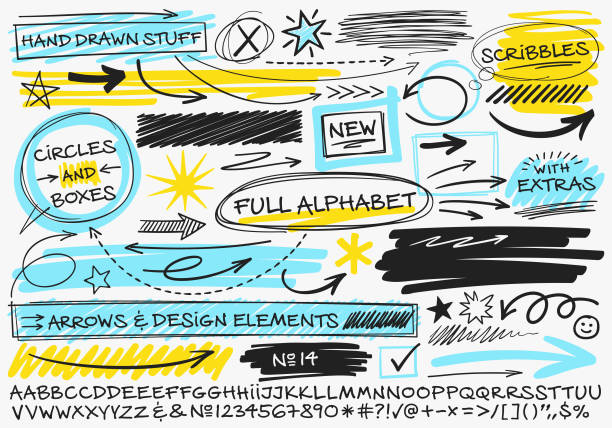 HAND DRAWN STUFF
X
SCRiBBLES
NEW
CiRCLES
AND
BOXES
WITH
EXTRAS
FULL ALPHABET
ARROWS & DESiGN ELEMENTS
№14
AABBCCDDEEFFGGHHiiJJKKLLMMNNOOPPQQRRSSTTUU
VVWWXXYYZZ&&№1234567890*#?!√@+-x=>/[]()"",$%